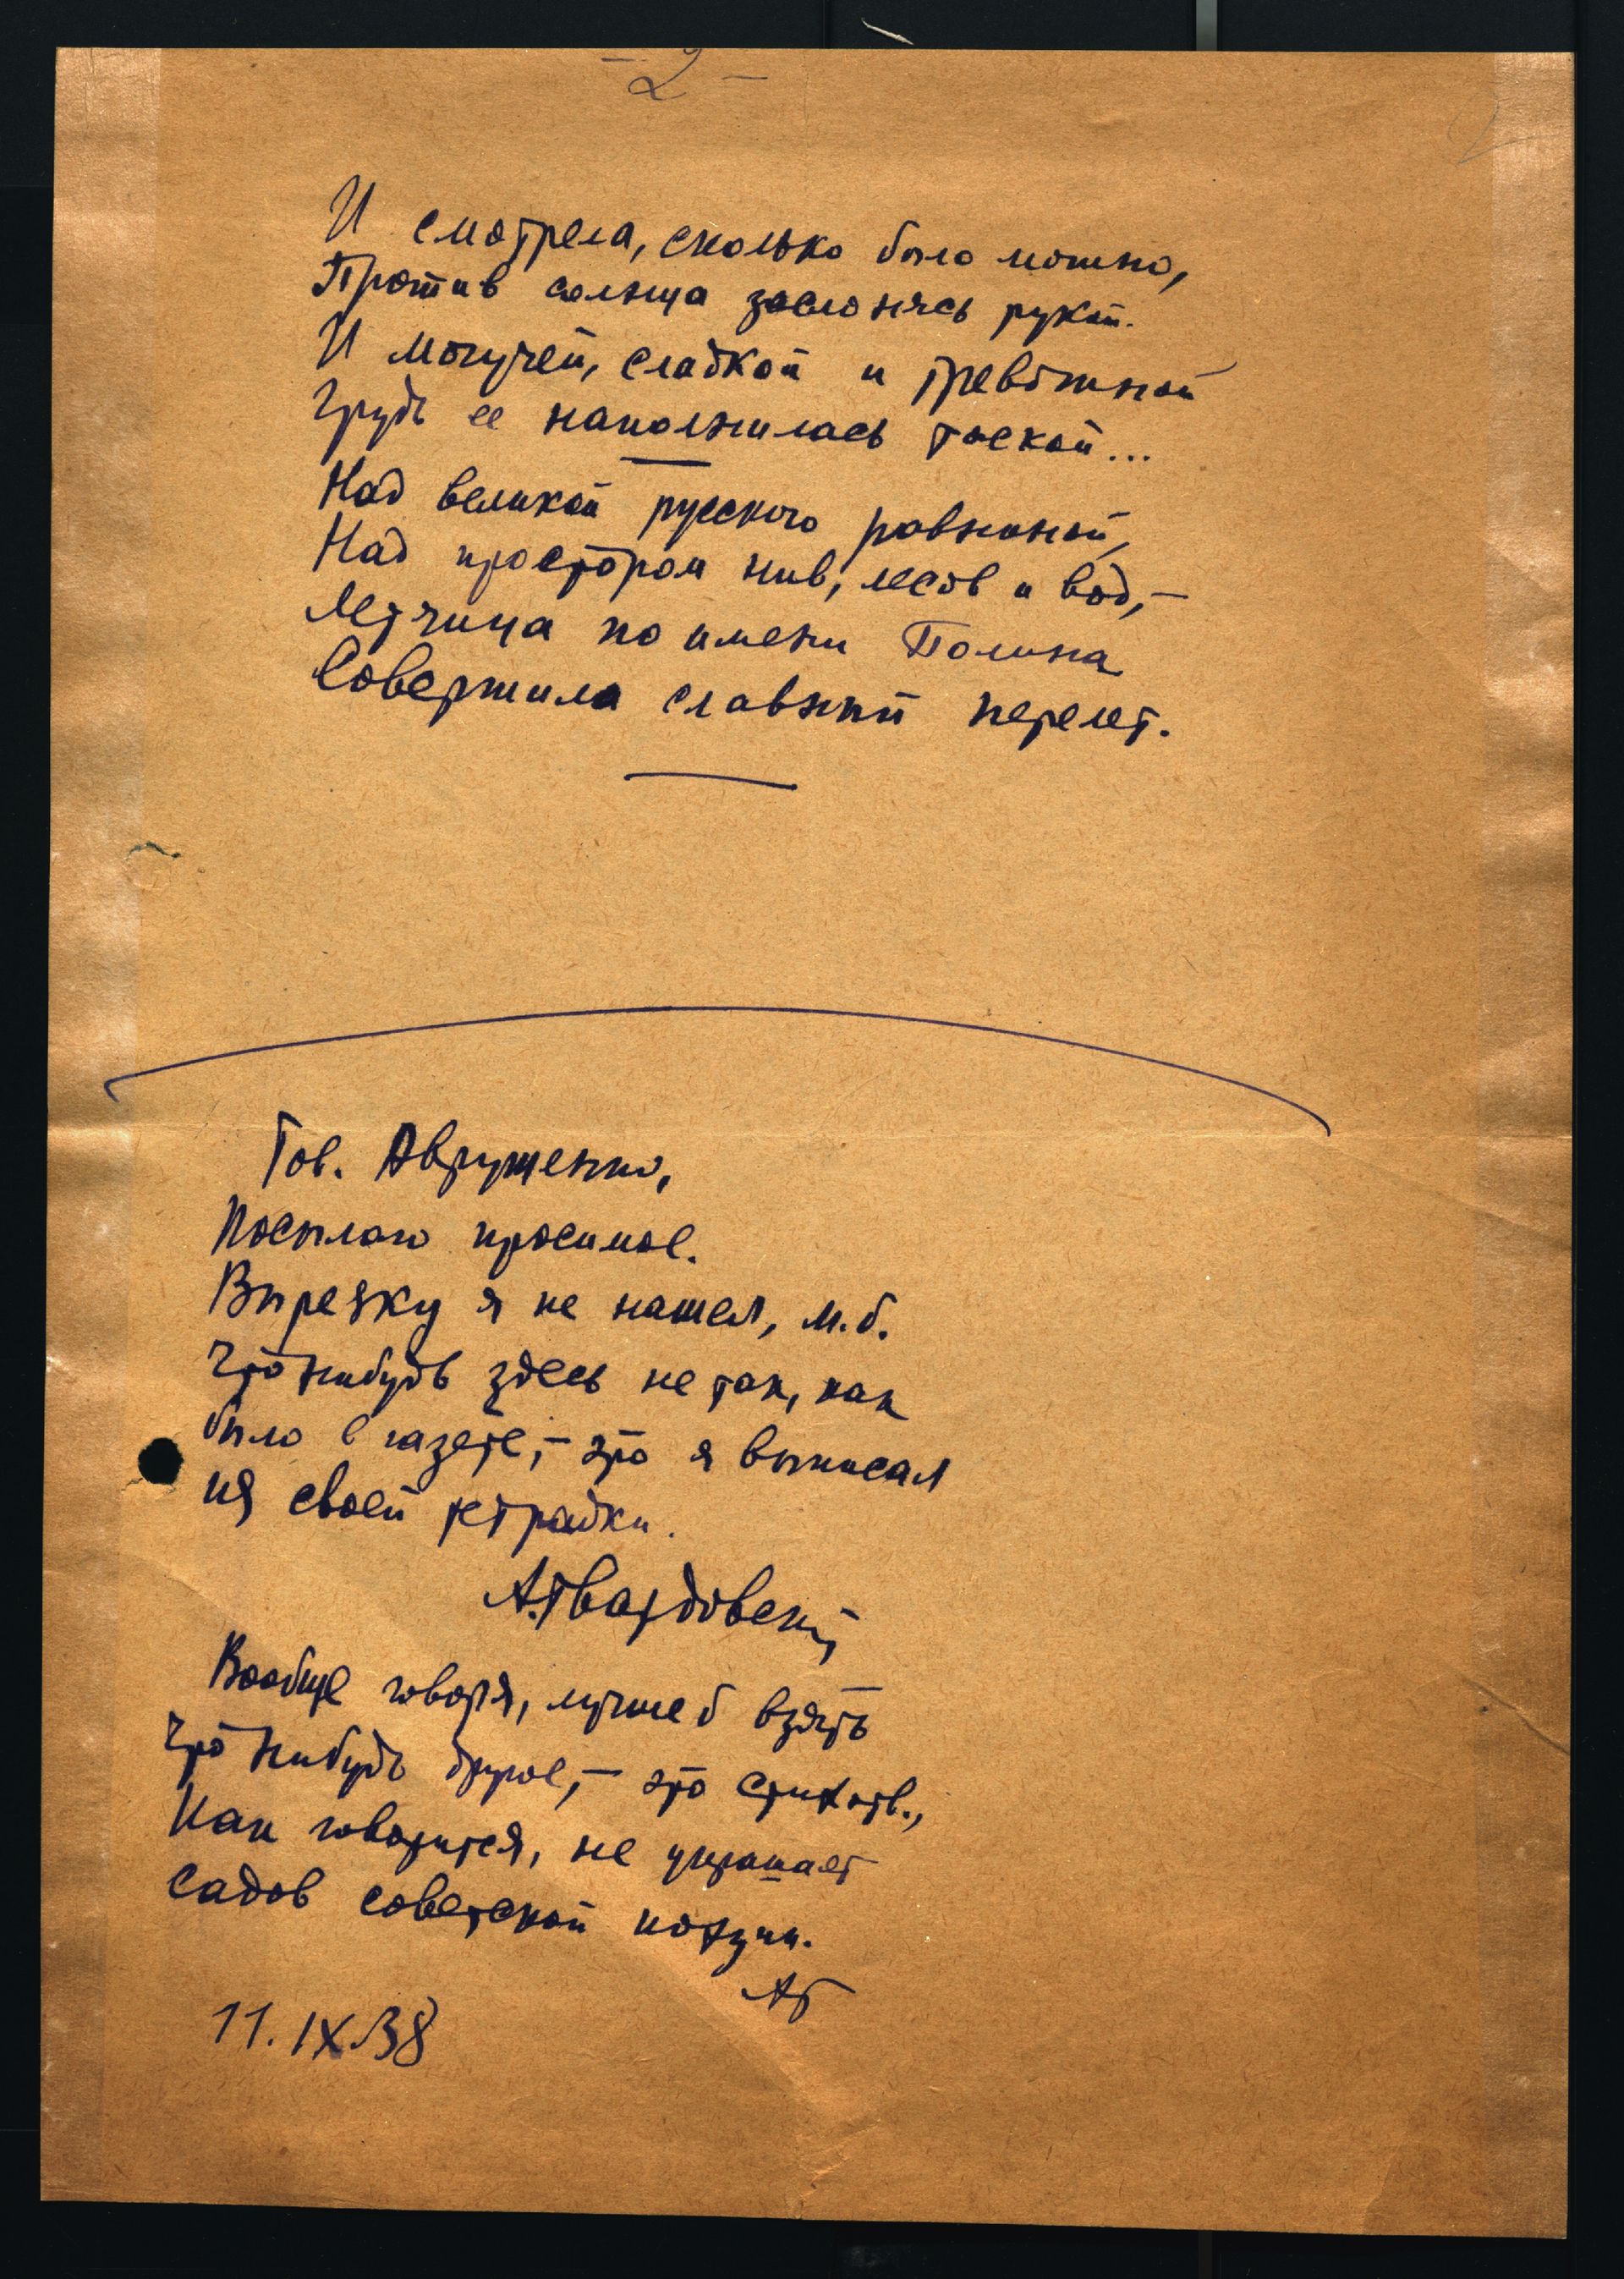 - 2 -
И смотрела, сколько было можно,
Против солнца заслонясь рукой.
И могучей, сладкой и тревожной
Грудь ее наполнилась тоской...
Над великой русскою равниной,
Над простором нив, лесов и вод,-
Летчица по имени Полина
Совершила славный перелет.
Тов. Аврущенко,
Посылаю просимое.
Вырезку я не нашел, м.б.
что нибудь здесь не так, как
было в газете,- это я выписал
из своей тетрадки.
А.Твардовский
Вообще говоря, лучше б взять
что нибудь другое,- это стихотв.,
как говорится, не украшает
садов советской поэзии.
АТ
11.IX.38